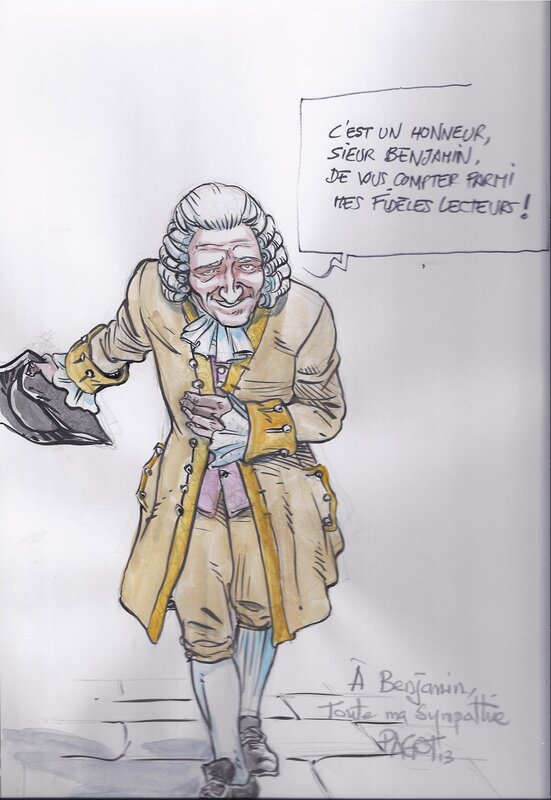 C'EST UN HONNEUR,
SIEUR BENJAMIN,
DE VOUS COMPTER PARMI
MES FIDÈLES LECTEURS !
À Benjamin,
Toute ma Sympathie
PAGOT 13